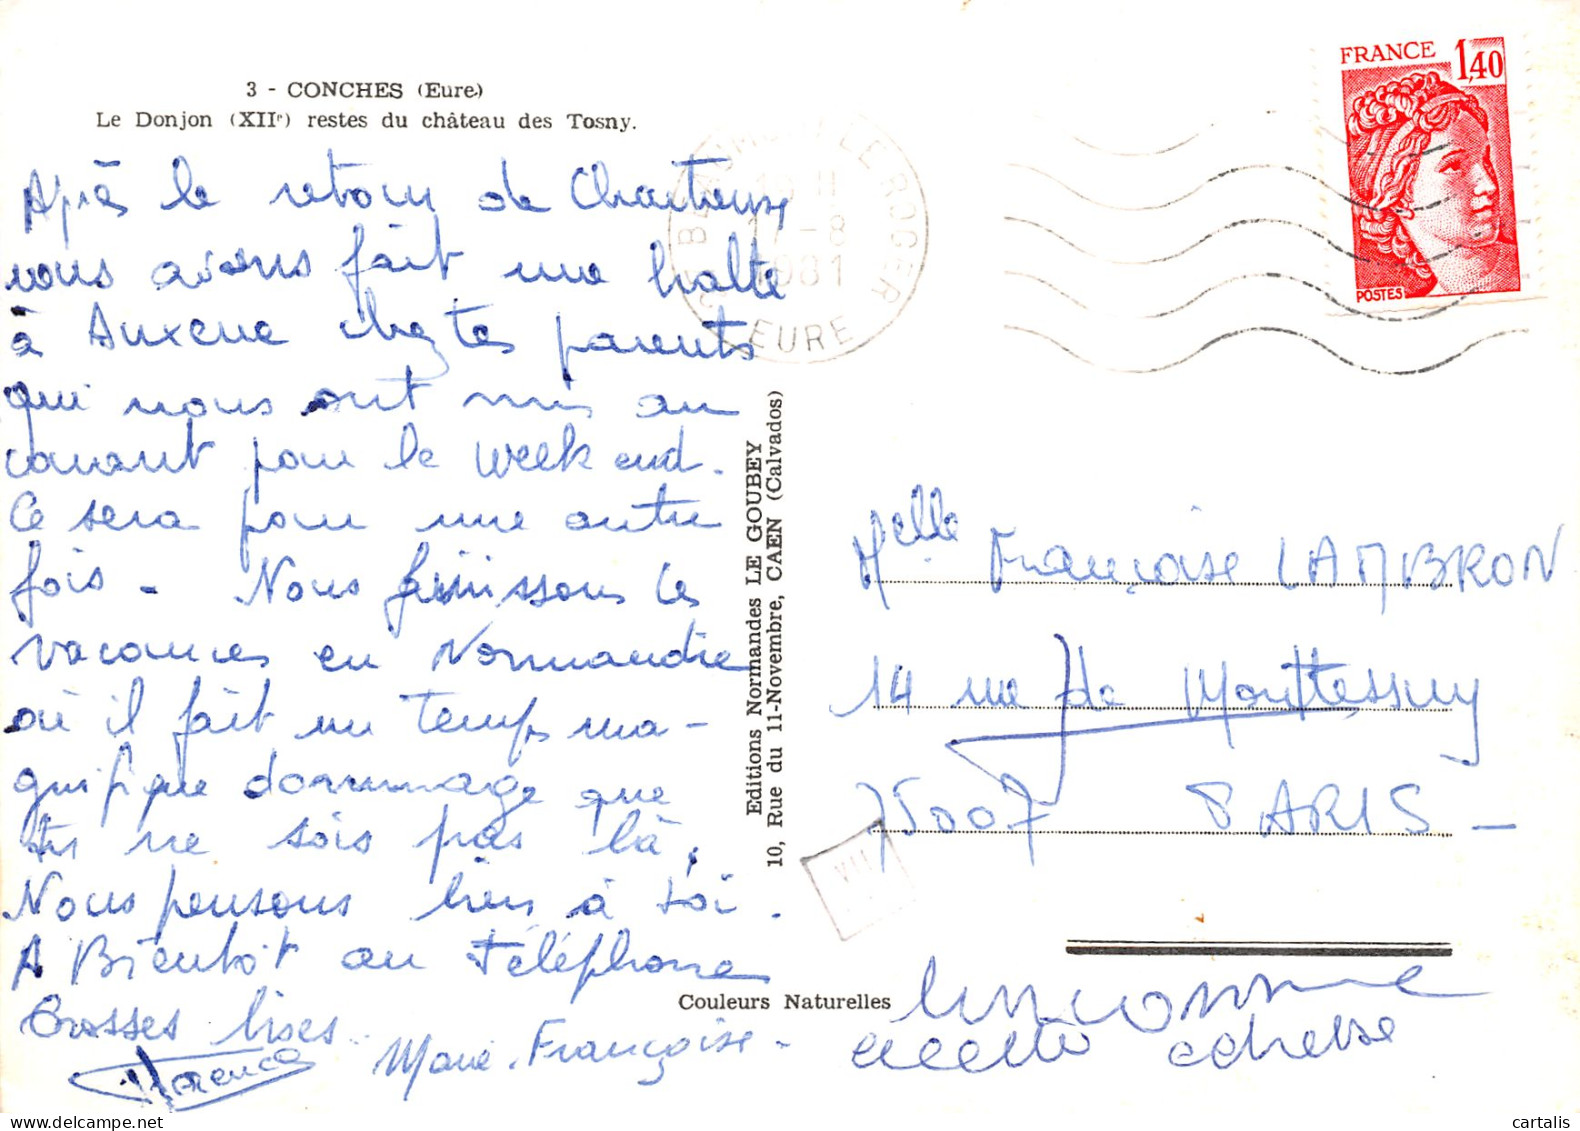 3 - CONCHES (Eure)
Le Donjon (XIIe) restes du château des Tosny.
Après le retour de Chartreuse
nous avons fait une halte
à Auxerre chez tes parents
qui nous ont mis au
courant pour le week end.
Ce sera pour une autre
fois - Nous finissons les
vacances en Normandie
où il fait un temps ma-
gnifique dommage que
tu ne sois pas là,
Nous pensons bien à toi.
A Bientôt au téléphone
Grosses bises
Marie-Françoise -
Florence
FRANCE 1,40
POSTES
LEROGER
-8
1981
EURE
Editions Normandes LE GOUBEY
10, Rue du 11-Novembre, CAEN (Calvados)
Melle Françoise LAMBRON
14 rue de Monttessuy
75007 PARIS -
VII
Couleurs Naturelles
inconnue
adresse
cartalis
delcampe.net